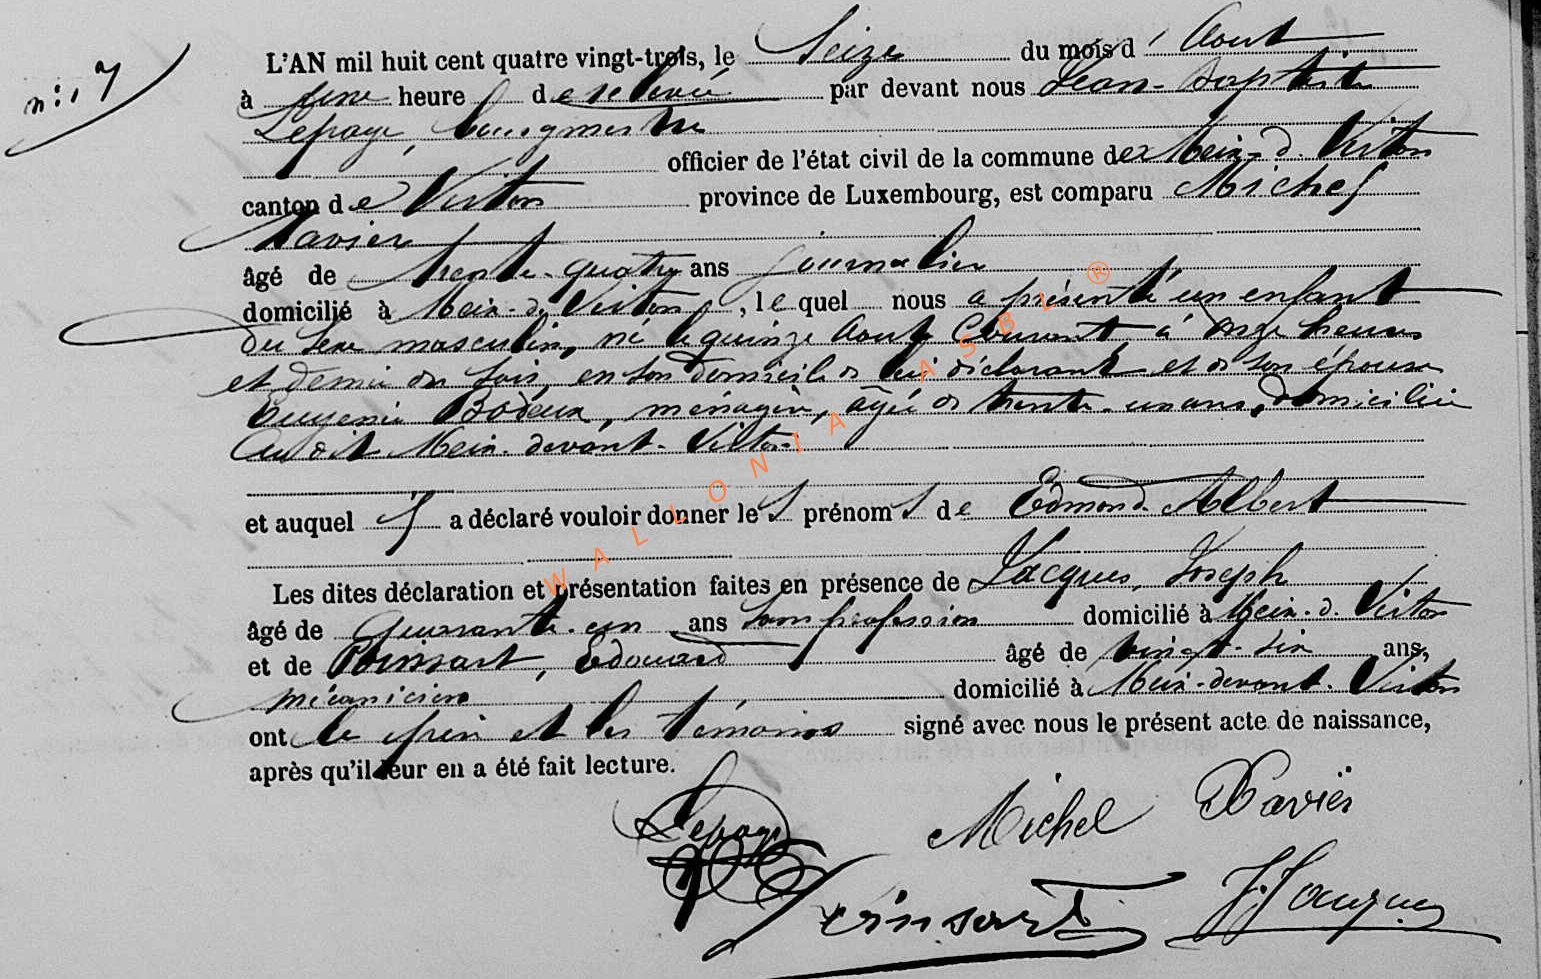 n: 17
L'AN mil huit cent quatre vingt-trois, le Seize du mois d' Aout
à une heure de relevée par devant nous Jean-Baptiste
Lepage, bourgmestre
officier de l'état civil de la commune de Meix-d. Virton
canton de Virton province de Luxembourg, est comparu Michel
Xavier
âgé de trente-quatre ans journalier
domicilié à Meix-d. Virton, lequel nous a présenté un enfant
du sexe masculin, né le quinze Aout Courant, à onze heures
et demie du soir, en son domicile de lui déclarant et de son épouse
Eugénie Bodeux, ménagère, âgée de trente-un ans, domiciliée
au dit Meix-devant-Virton
et auquel il a déclaré vouloir donner les prénoms de Edmond-Albert
Les dites déclaration et présentation faites en présence de Jacques, Joseph
âgé de quarante-un ans Sans profession domicilié à Meix-d. Virton
et de Poinsart, Edouard âgé de vingt-six ans,
mécanicien domicilié à Meix-devant-Virton
ont le père et les témoins signé avec nous le présent acte de naissance,
après qu'il leur en a été fait lecture.
Lepage
Michel Xavier
Poinsart J. Jacques
WALLONIA ASBL ®